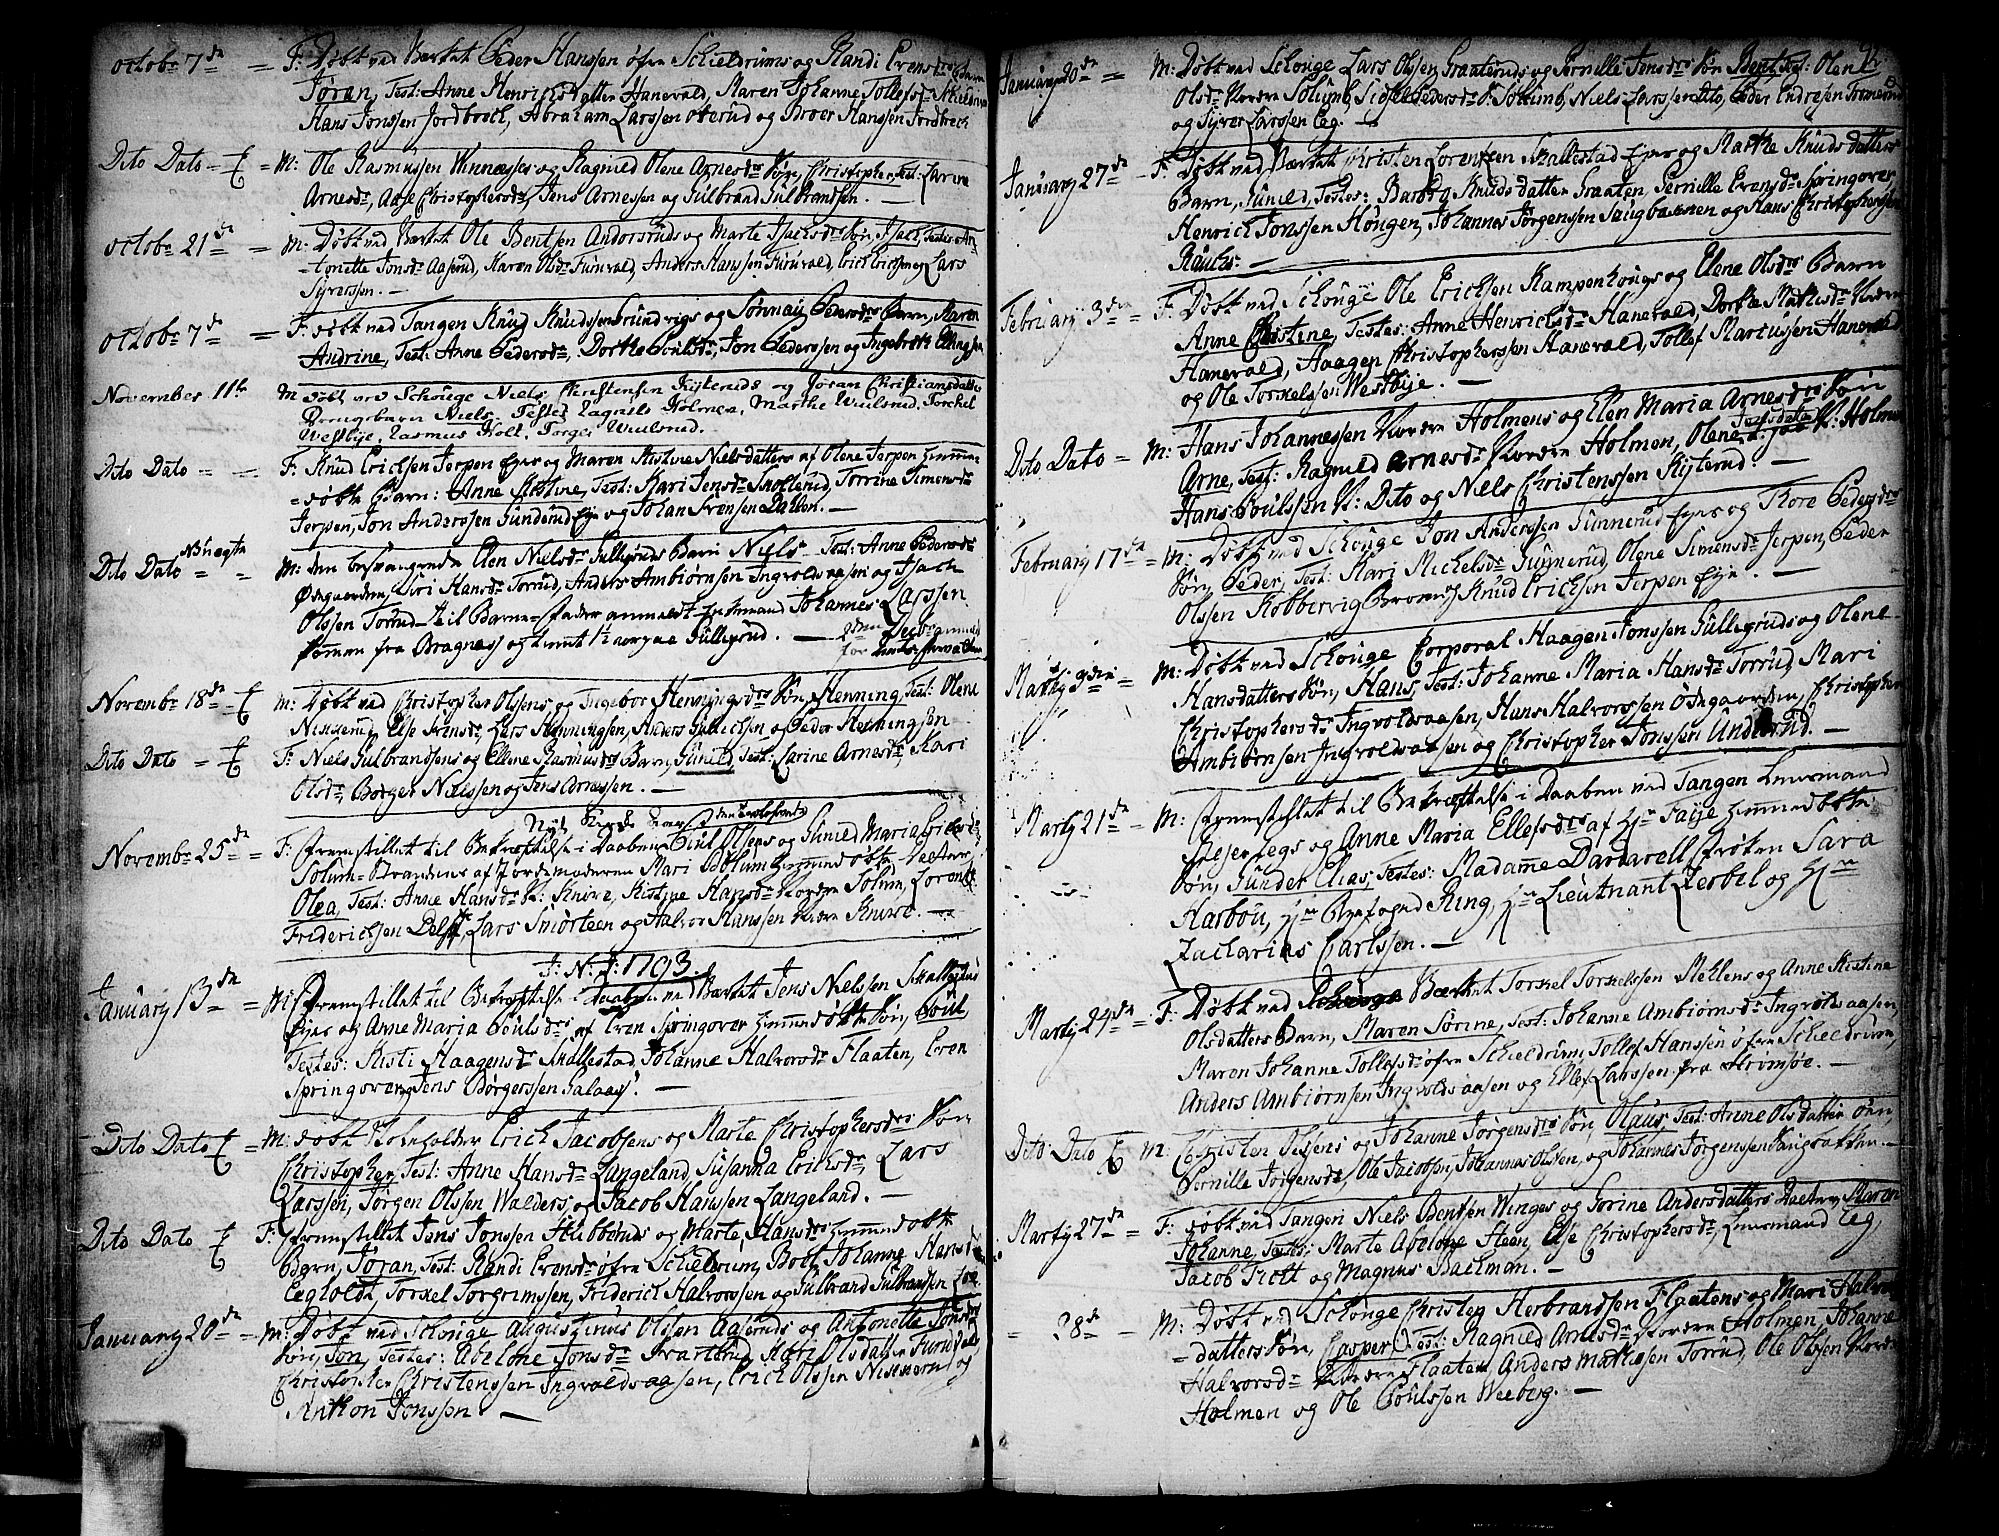 octobr 7de = F: Døbt ved Værket Peder Hanssen øfre Schieldrums og Randi Evensdrs Barn
Jøran, Test: Anne Henrichsdatter Hanevald, Maren Johanne Tollefsdr
Hans Jonssen Jordbrech, Abraham Larssen og Broer Hanssen Jordbrech
Dito Dato = M: Ole Rasmussen og Ragnild Olene Arnesdrs Søn, Christopher, Test: Karine
Arnesdr, Aase Christophersdr, Jens Arnessen og Gulbrand Gulbrandsen. —
octobr 21de = M: Døbt ved Værket Ole Bentsen Andorsruds og Marte Isachsdrs Søn, Isach, Testes: An-
-tonette Jonsdr Aaserud, Karen Olsdr Furuvald, Anders Hanssen Furuvald, Erich Erichsen og Lars
Syverssen. —
octobr 7de = F: døbt ved Tangen Knud Knudssen Grundvigs og Sønnau Pedersdrs Barn, Maren
Andrine, Test: Anne Pedersdr, Dorthe Poulsdr, Jon Pederssen og Ingebreth Ellingsen
November 11te M døbt ved Schouge Niels Christensen Kjteruds og Jøran Christiansdatter
Drengebarn Niels, Testes Ragnild Holmen, Marthe Wiulsrud, Torchel
Westbye, Rasmus Holt, Torger Wiulsrud.
Dito Dato = = F: Knud Erichsen Jerpen Eyes og Maren Kistine Nielsdatters af Olene Jerpen hiemme
-døbte Barn: Anne Kistine, Test: Kari Jensdr Skollerud, Torrine Simensdr
Jerpen, Jon Anderssen Gunderud Eye og Johan Svensen Dalten. —
Dito Dato = NB uægte = M: den besvangrende Elen Nielsdr Gulliksruds Barn Niels — Test: Anne Pedersdr
Ødegaarden, Siri Hansdr Torrud, Anders Ambiørnsen Ingvoldsaasen og Isach
Olssen Torrud — til Barne-fader anmeldt Johannes Larssen
kommen fra Bragness og tient 1½ aar paa Gulliksrud. — 2den Decbr
for
Novembr 18de M: Døbt ved Christopher Olssens og Ingebor Henningsdrs Søn, Henning, Test: Olene
Nisserud, Else Svensdr, Lars Henningsen, Anders Gullichsen og Peder Henningsen
Dito Dato = F: Niels Gulbrandsens og Ellene Rasmusdrs Barn, Gunild, Test: Karine Arnesdr, Kari
Olsdr, Borger Nielssen og Jens Arnessen. —
Novembr 25de = F: Fremstillet til Bekræftelse i Daaben Poul Olsens og Gunild Maria Erichsdrs
Solum-Strandens af Jordemoderen Mari Solum hiemmedøbte Datter,
Olea, Test: Anne Hansdr W: Knive, Kistine Hansdr Nordre Solum, Lorentz
Friderichsen Delff, Lars Smørsteen og Halvor Hanssen Nedre Knive. —
J: N: J: 1793.
Januarj 13de = M: Fremstillet til Bekræftelse i Daaben ved Værket Jens Nielssen Skallestad
Eyes og Anne Maria Poulsdrs af Even Springover hiemmedøbte Søn, Poul,
Testes: Kisti Haagensdr Skallestad, Johanne Halvorsdr Flaaten, Even
Springover og Jens Børgerssen Galaas. —
Dito Dato = M: døbt Erich Jacobsens og Marte Christophersdrs Søn
Christopher, Test: Anne Hansdr Langeland, Susanna Erichsdr Lars
Larssen, Jørgen Olssen Walders, og Jacob Hanssen Langeland. —
Dito Dato F: Fremstillet Jens Jonssen Hubberuds og Marte Hansdrs hiemmedøbte
Barn, Jøran, Test: Randi Evensdr øfre Schieldrum, Boel Johanne Hansdr
Eegholdt, Torkel Torgrimssen, Friderich Halvorssen og Gulbrand Gulbrandssen
Januarj 20de = M: Døbt ved Schouge Augustinus Olssen Aaseruds og Antonette Jonsdrs
Søn, Jon, Testes: Abelone Jonsdr Svartrud, Kari Olsdatter Furuvald,
Christopher Christenssen Ingvoldsaasen, Erich Olssen Nisserud og
Anthon Jonssen. —
Januarj 20de = M: Døbt ved Schouge Lars Olssen Graateruds og Pernille Jonsdrs Søn Bent, Test: Olene
Olsdr Nordre Solumb, Sidsel Pedersdr S: Solumb, Niels Larssen Dito, Peder Endresen
og Syver Larssen Eeg. —
Januarj 27de = F: Døbt ved Værket Christen Lorentsen Skallestad Eyes og Marthe Knudsdatters
Barn, Gunild, Testes: Barbro Knudsdatter Graaten, Pernille Evensdr Springover
Henrich Jonssen Hougen, Johannes Jørgenssen Saugbakken og Hans Christophersen
Rauchs. —
Februarj 3die = F: Døbt ved Schouge Ole Erichsen Kampenhougs og Elene Olsdrs Barn
Anne Christine, Testes: Anne Henrichsdr Hanevald, Dorthe Mathisdr Nedre
Hanevald, Haagen Christopherssen Hanevald, Tollef Marcussen Hanevald
og Ole Torkelssen Westbije. —
Dito Dato = M: Hans Johannessen Nordre Holmens og Elen Maria Arnesdrs Søn
Arne, Test: Ragnild Arnesdr Nordre Holmen, Olene Jensdatter W: Holmen
Hans Poulssen W: Dito og Niels Christenssen Kjterud. —
Februarj 17de = M: Døbt ved Schouge Jon Anderssen Gunnerud Eyes og Thore Pedersdrs
Søn, Peder, Test: Kari Michelsdr Gunnerud, Olene Simensdr Jerpen, Peder
Olssen Kobbervig Broen og Knud Erichsen Jerpen Eye. —
Martij 3die = M: Døbt ved Schouge Corporal Haagen Jonssen Gulliksruds og Olene
Hansdatters Søn, Hans, Test: Johanne Maria Hansdr Torrud, Mari
Christophersdr Ingvoldsaasen, Hans Halvorssen Ødegaarden, Christopher
Ambiørnsen Ingvoldsaasen og Christopher Jonssen Underud. —
Martij 21de = M: Fremstillet til Bekræftelse i Daaben ved Tangen
Peser Eegs og Anne Maria Ellefsdrs af Hr Faije hiemmedøbte
Søn, Gunder Elias, Testes: Madame Dardarell, Frøken Sara
Harbou, Hr Byefoged Ring, Hr Lieutnant Zerbel og Hr
Zacharias Carlssen. —
Martij 24de = F: Døbt ved Schouge Værket Torkel Torkelssen Mehlens og Anne Kistine
Olsdatters Barn, Maren Sørine, Test: Johanne Ambiørnsdr Ingvoldsaasen,
Maren Johanne Tollefsdr øfre Schieldrum, Tollef Hanssen øfre Schieldrum,
Anders Ambiørnsen Ingvoldsaasen og Ellef Larssen fra Strømsøe. —
Dito Dato M: Christen Olssens og Johanne Jørgensdrs Søn, Olaus, Test: Anne Olsdatter Øen,
Pernille Jørgensdr, Ole Jacobsen, Johannes Olssen, og Johannes Jørgenssen Saugbakken. —
Martij 27de = F: døbt ved Tangen Niels Bentsen Winges og Sørine Andersdatters Daatter, Maren
Johanne, Testes: Marte Abelone Steen, Else Christophersdr, Eeg,
Jacob Trott og Magnus Bachman. —
= 28de = M: Døbt ved Schouge Christen Herbrandssen Flaatens og Mari Halvors
-datters Søn, Casper, Test: Ragnild Arnesdr Nordre Holmen, Johanne
Halvorsdr Nedre Flaaten, Anders Mathisen Torrud, Ole Olssen Nordre
Holmen og Ole Poulssen Weeberg. —